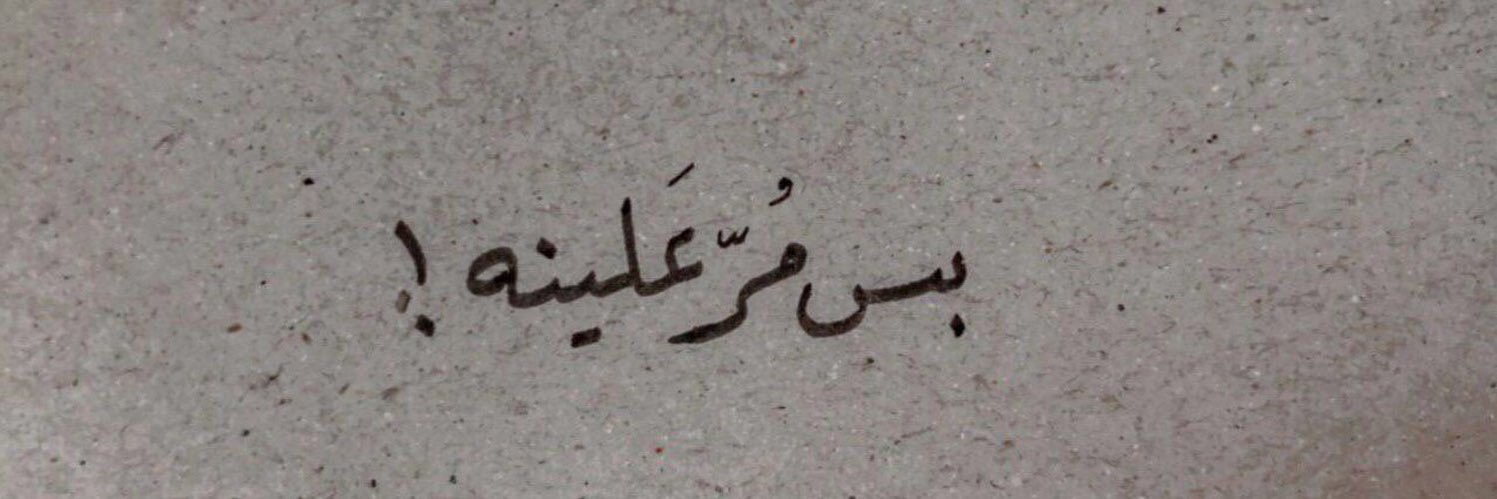 بس مُرّ عَلينه !